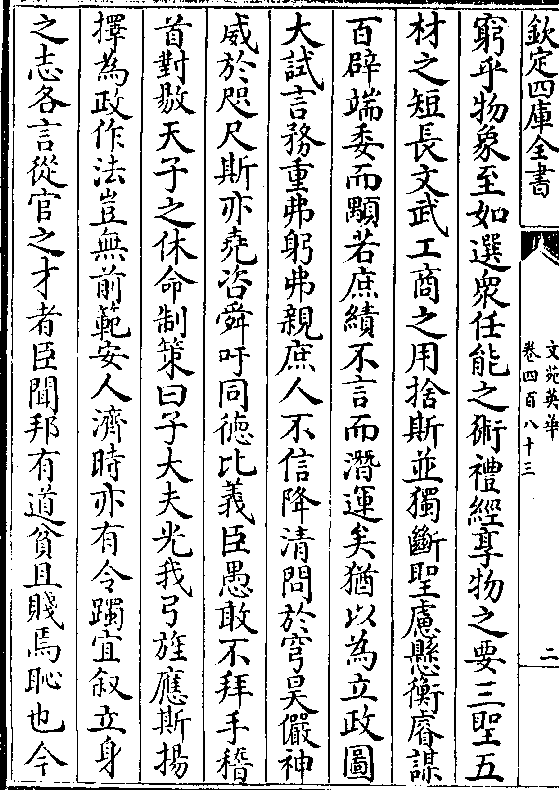 欽定四庫全書
文苑英華
卷四百八十三
二
窮乎物象至如選衆任能之術禮經享物之要三聖五
材之短長文武工商之用捨斯並獨斷聖慮懸衡睿謀
百辟端委而顒若庶績不言而潛運矣猶以為立政圖
大試言務重弗躬弗親庶人不信降清問於穹昊儼神
威於咫尺斯亦堯咨舜吁同徳比義臣愚敢不拜手稽
首對敭天子之休命制策曰子大夫光我弓旌應斯揚
擇為政作法豈無前範安人濟時亦有令躅宜叙立身
之志各言從官之才者臣聞邦有道貧且賤焉恥也今